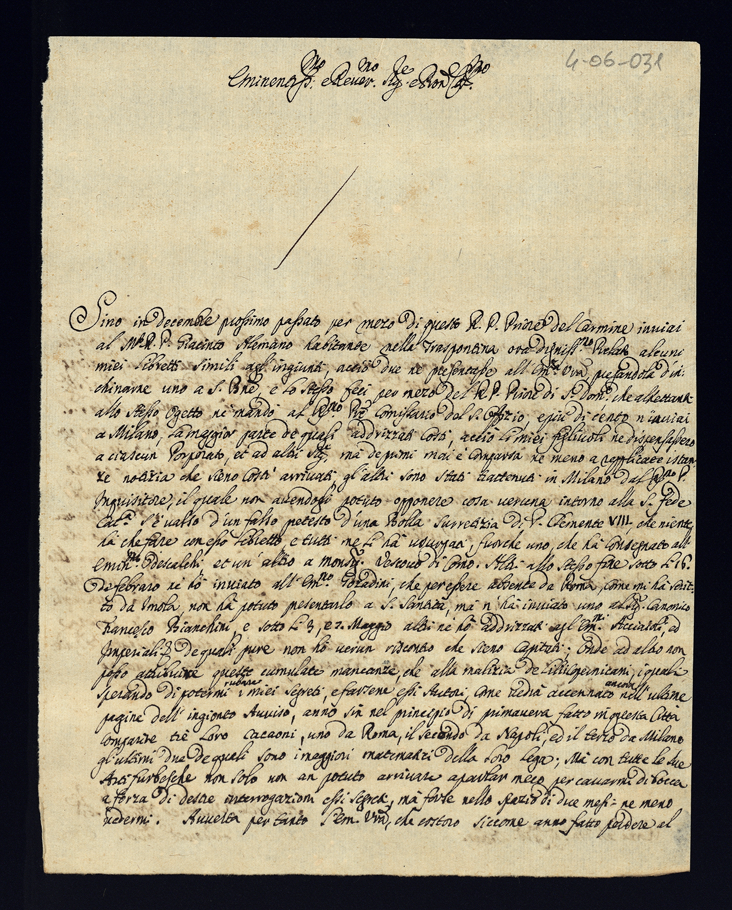 4-06-031
Eminen.mo e Rever.mo Sig.re e Pron.
Sino in decembre prossimo passato per mezo di questo R. P. Priore del Carmine inviai
al P. Giacinto Alemano habitante nella Traspontina ora alcuni
miei libretti simili ingiunti, acciò due ne presentasse all' Em.
uno a S. e lo stesso feci per mezo del R. P. Priore di S.
allo stesso ogetto ne mandò al Comissario del S. Ofizio, e più di cento n' inviai
a Milano, la maggior parte de quali addrizzati costì, acciò li miei figliuoli ne dispensassero
a ciascun Porporato, et ad altri Sig. ma de primi mai è comparsa ne meno a
notizia che sieno costì arrivati, gl' altri sono stati trattenuti in Milano dal P.
Inquisitore, il quale non avendogli potuto opponere cosa veruna intorno alla S. fede
Cat.a s' è valso d' un falso pretesto d' una Bolla Surretizia di P. Clemente VIII. che niente
hà che fare con esso libretto e tutti ne li hà usurpati, fuorche uno, che hà consegnato all'
Emin. Odescalchi et un' altro a Monsig. Vescovo di Como. Altri allo stesso fine sotto li 16.
De febraro ne hò inviato all' Em.mo che per essere absente da Roma, come mi hà scrit-
to da Imola, non hà potuto presentarlo a S. Santità, ma n' hà inviato uno Canonico
Francesco Bianchini, e sotto li 3, e 2. Maggio altri ne hò addrizzati agl' Em. Acciaioli, ed
Imperiali de quali pure non hò verun riscontro che sieno capitati; Onde ad altro non
posso attribuire queste cumulate mancanze, che alla malitia de i quali
sperando di potermi rubare i miei segreti, e farsene essi Autori, come vedrà accennato ancora nell' ultime
pagine dell' ingionto Avviso, anno sin nel principio di primavera fatto in questa Città
comparire trè Loro uno da Roma, il secondo da Napoli, ed il terzo da Milano
gli ultimi due de quali sono i maggiori matematici della loro lega; Mà con tutte le sue
Arti furbesche non solo non an potuto arrivare a parlar meco per cavarmi di bocca
a forza di destre interrogazioni essi segreti, mà forse nello spazio di due mesi ne meno
vedermi. Avverta per tanto l' Em. V.ra, che costoro siccome anno fatto perdere al